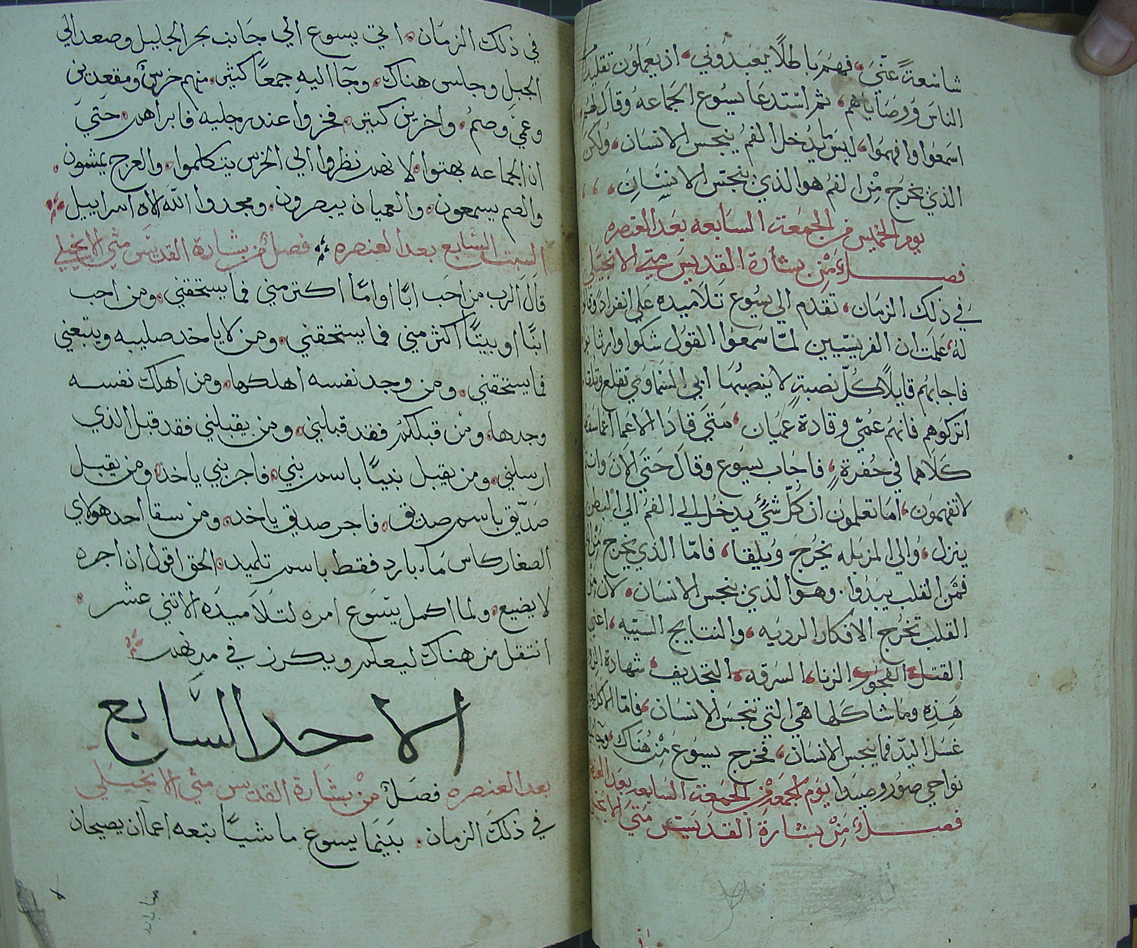 شاسعةً عنّي، فهم باطلًا يعبدوني، اذ يعملون تقليد
الناس ووصاياهم، ثم استدعا يسوع الجماعه وقال لهم
اسمعوا وافهموا، ليس ما يدخل الفم ينجس الانسان، ولكن
الذي يخرج من الفم هو الذي ينجس الانسان،
يوم الخميس من الجمعة السابعه بعد العنصره
فصل من بشارة القديس متي الانجيلي
في ذلك الزمان، تقدم الي يسوع تلاميذه علي انفراد
له، علمت ان الفريسيين لمّا سمعوا القول شكوا
فاجابهم قايلًا كلّ نصبةٍ لا ينصبها ابي السماوي تقلع
اتركوهم فانهم عمي وقادة عميان، متي قاد الاعما اعما
كلاهما في حفرةٍ، فاجاب يسوع وقال حتي الان وانتم
لا تفهمون، اما تعلمون ان كلّ شيٍ يدخل الي الفم الي البطن
ينزل، والي المزبله يخرج ويلقا، فامّا الذي يخرج من
فمن القلب يبدوا. وهو الذي ينجس الانسان، لان من
القلب تخرج الافكار الرديه، والنتايج السيّيه، اعني
القتل، الفجور، الزنا، السرقه، التجديف، شهادة الزور
هذه وما شاكلها هي التي تنجس الانسان، فامّا الاكل
غسل اليد فما ينجس الانسان، فخرج يسوع من هناك، وجا
نواحي صور وصيدا يوم الجمعه من الجمعة السابعه بعد العنصره
فصل من بشارة القديس متي الانجيلي
في ذلك الزمان، اتي يسوع الي جانب بحر الجليل وصعد الي
الجبل وجلس هناك، وجا اليه جمعًا كثير، منهم خرسٌ ومقعدين
وعميٌ وصمٌ، واخرين كثير، فخروا عند رجليه فابراهم، حتي
ان الجماعه بهتوا، لانهم نظروا الي الخرس يتكلموا، والعرج يمشون
والصم يسمعون، والعميان يبصرون، ومجدوا الله الاه اسراييل،
السبت السابع بعد العنصره فصل من بشارة القديس متي الانجيلي
قال الرب من احب ابًا او امًا اكتر مني فما يستحقني، ومن احب
ابنًا او بنتًا اكثر مني فما يستحقني، ومن لا ياخد صليبه ويتبعني
فما يستحقني، ومن وجد نفسه اهلكها، ومن اهلك نفسه
وجدها، ومن قبلكم فقد قبلني، ومن يقبلني فقد قبل الذي
ارسلني، ومن يقبل نبيًا باسم نبي، فاجر نبي ياخد، ومن يقبل
صدّيق باسم صديق، فاجر صديق ياخد، ومن سقا احد هولاي
الصغار كاس ماءٍ بارد فقط باسم تلميد، الحق اقول ان اجره
لا يضيع، ولما اكمل يسوع امره لتلاميده الاتني عشر،
انتقل من هناك ليعلم ويكرز في مدنهم
الاحد السابع
بعد العنصره فصل من بشارة القديس متي الانجيلي
في ذلك الزمان، بينما يسوع ماشيًا تبعه اعماان يصيحان